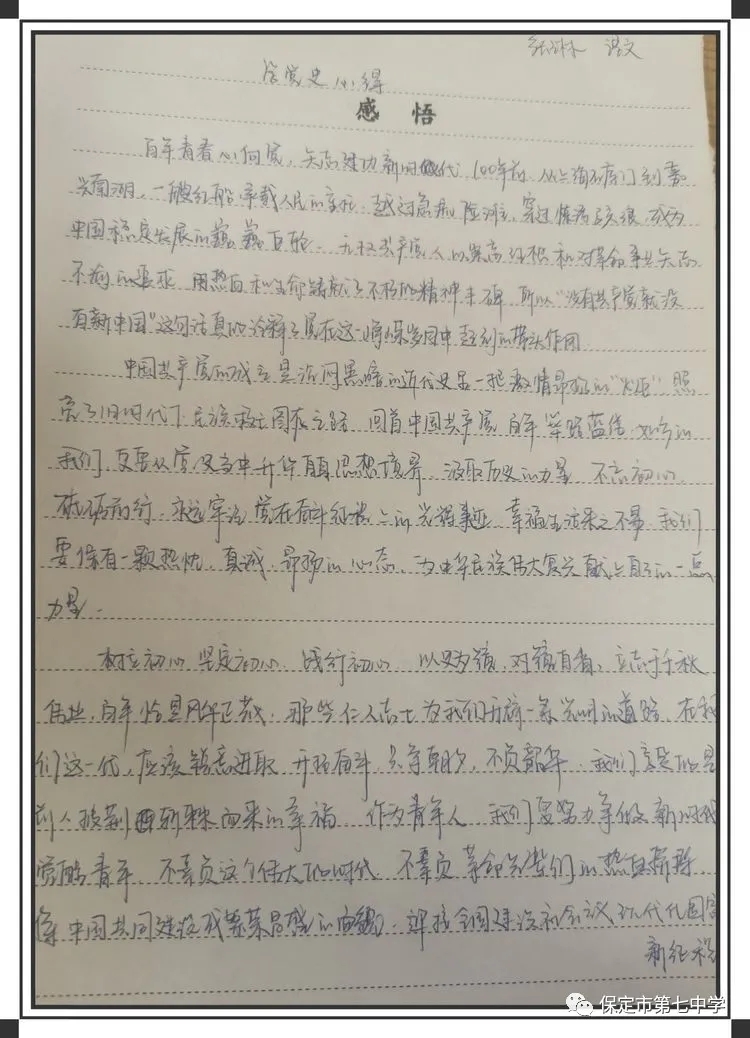 语文
学党史心得
感 悟
百年青春心向党，矢志建功新时代。100年前，从上海石库门到嘉
兴南湖，一艘红船承载人民的重托，越过急流险滩，穿过惊涛骇浪，成为
中国稳定发展的巍巍巨轮。无数共产党人以崇高理想和对革命事业矢志
不渝的追求，用热血和生命铸就了不朽的精神丰碑，所以“没有共产党就没
有新中国”这句话真的诠释了党在这一峥嵘岁月中起到的带头作用。
中国共产党的成立是沉闷黑暗的近代史最一把激情昂扬的“火炬”，照
亮了旧时代下民族救亡图存之路。回首中国共产党百年筚路蓝缕，如今的
我们，更要从党史中升华自身思想境界，汲取历史的力量，不忘初心，
砥砺前行，永远牢记党在奋斗征程上的光辉事迹，幸福生活来之不易，我们
要保有一颗热忱、真诚、昂扬的心态，为中华民族伟大复兴献上自己的一点
力量。
树立初心，坚定初心，践行初心，以史为镜，对镜自省，立志于千秋
伟业，百年恰是风华正茂，那些仁人志士为我们开辟一条光明的道路，在我
们这一代，应该锐意进取，开拓奋斗，只争朝夕，不负韶华，我们享受的是
前人披荆斩棘而来的幸福。作为青年人，我们要努力争做新时代
青年，不辜负这个伟大的时代，不辜负革命先辈们的热血
中国共同建设成繁荣昌盛的面貌，迎接全面建设社会主义现代化国家
新征程
保定市第七中学